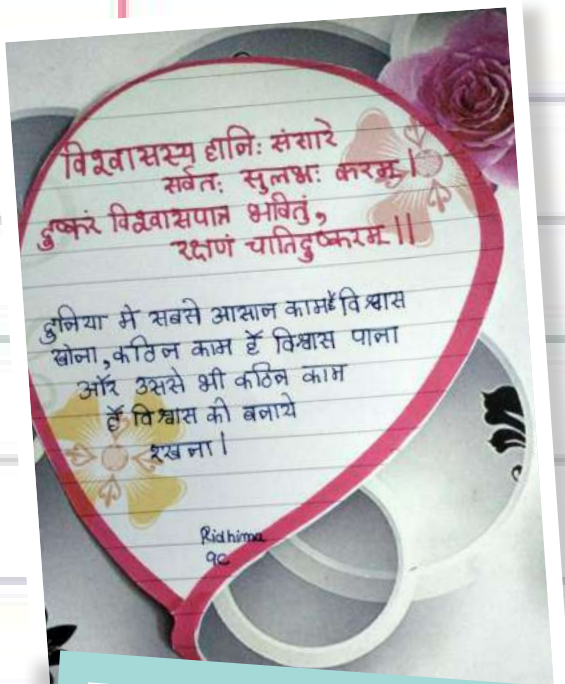 विश्वासस्य हानिः संसारे
सर्वतः सुलभः करम्।
दुष्करं विश्वासपात्र भवितुं,
रक्षणं चातिदुष्करम्।।
दुनिया मे सबसे आसान काम है विश्वास
खोना, कठिन काम हैं विश्वास पाना
और उससे भी कठिन काम
हैं विश्वास को बनाये
रखना।
Ridhima
9C